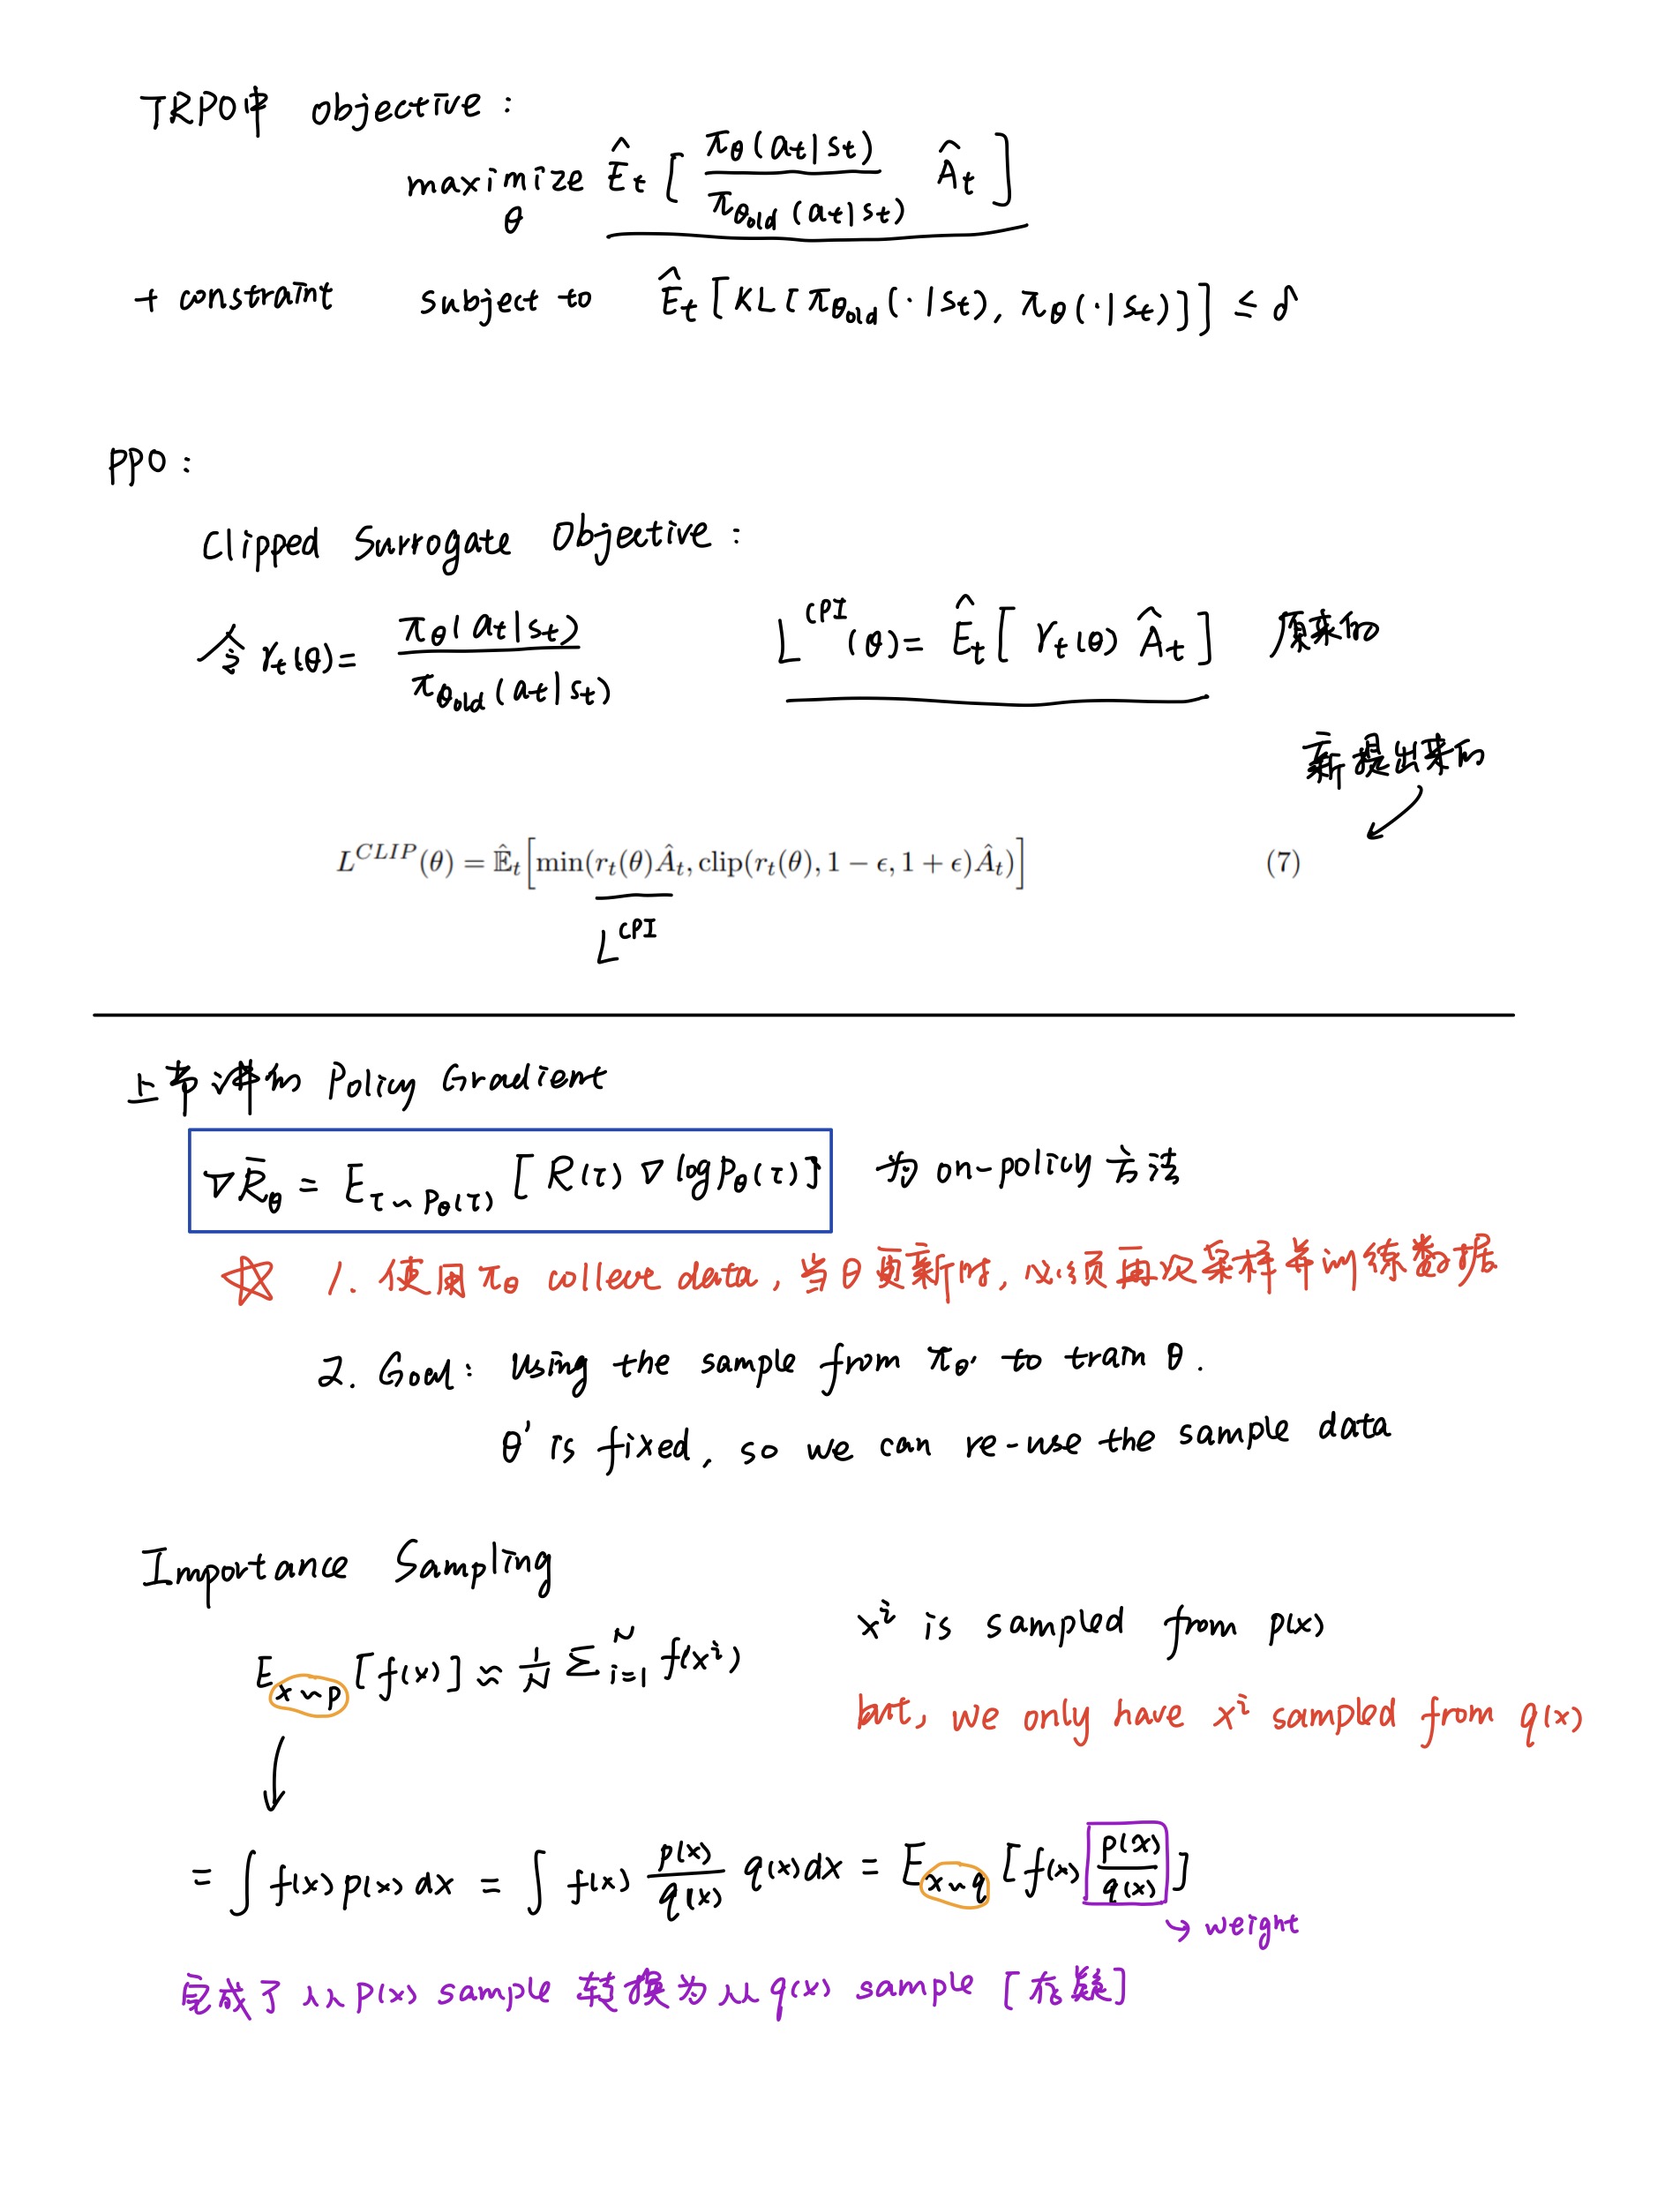 TRPO中 objective：
maximize_θ Ê_t [ π_θ(a_t|s_t) / π_θold(a_t|s_t) Â_t ]
+ constraint subject to Ê_t [KL[π_θold(·|s_t), π_θ(·|s_t)]] ≤ δ
PPO：
Clipped Surrogate Objective：
令 r_t(θ) = π_θ(a_t|s_t) / π_θold(a_t|s_t) L^CPI(θ) = Ê_t [ r_t(θ) Â_t ] 原来的
新提出来的
L^CLIP(θ) = Ê_t[min(r_t(θ)Â_t, clip(r_t(θ), 1 − ϵ, 1 + ϵ)Â_t)] (7)
L^CPI
上节讲的 Policy Gradient
∇R̄_θ = E_τ∼P_θ(τ) [ R(τ) ∇ log P_θ(τ)] 为 on-policy 方法
☆ 1. 使用 π_θ collect data, 当θ更新时, 必须再次采样并训练数据
2. Goal: Using the sample from π_θ' to train θ.
θ' is fixed, so we can re-use the sample data
Importance Sampling
E_x∼p [f(x)] ≈ 1/N Σ_i=1^N f(x^i) x^i is sampled from p(x)
but, we only have x^i sampled from q(x)
= ∫ f(x) p(x) dx = ∫ f(x) p(x)/q(x) q(x)dx = E_x∼q [f(x) p(x)/q(x)]
→ weight
完成了从 p(x) sample 转换为从 q(x) sample [存疑]